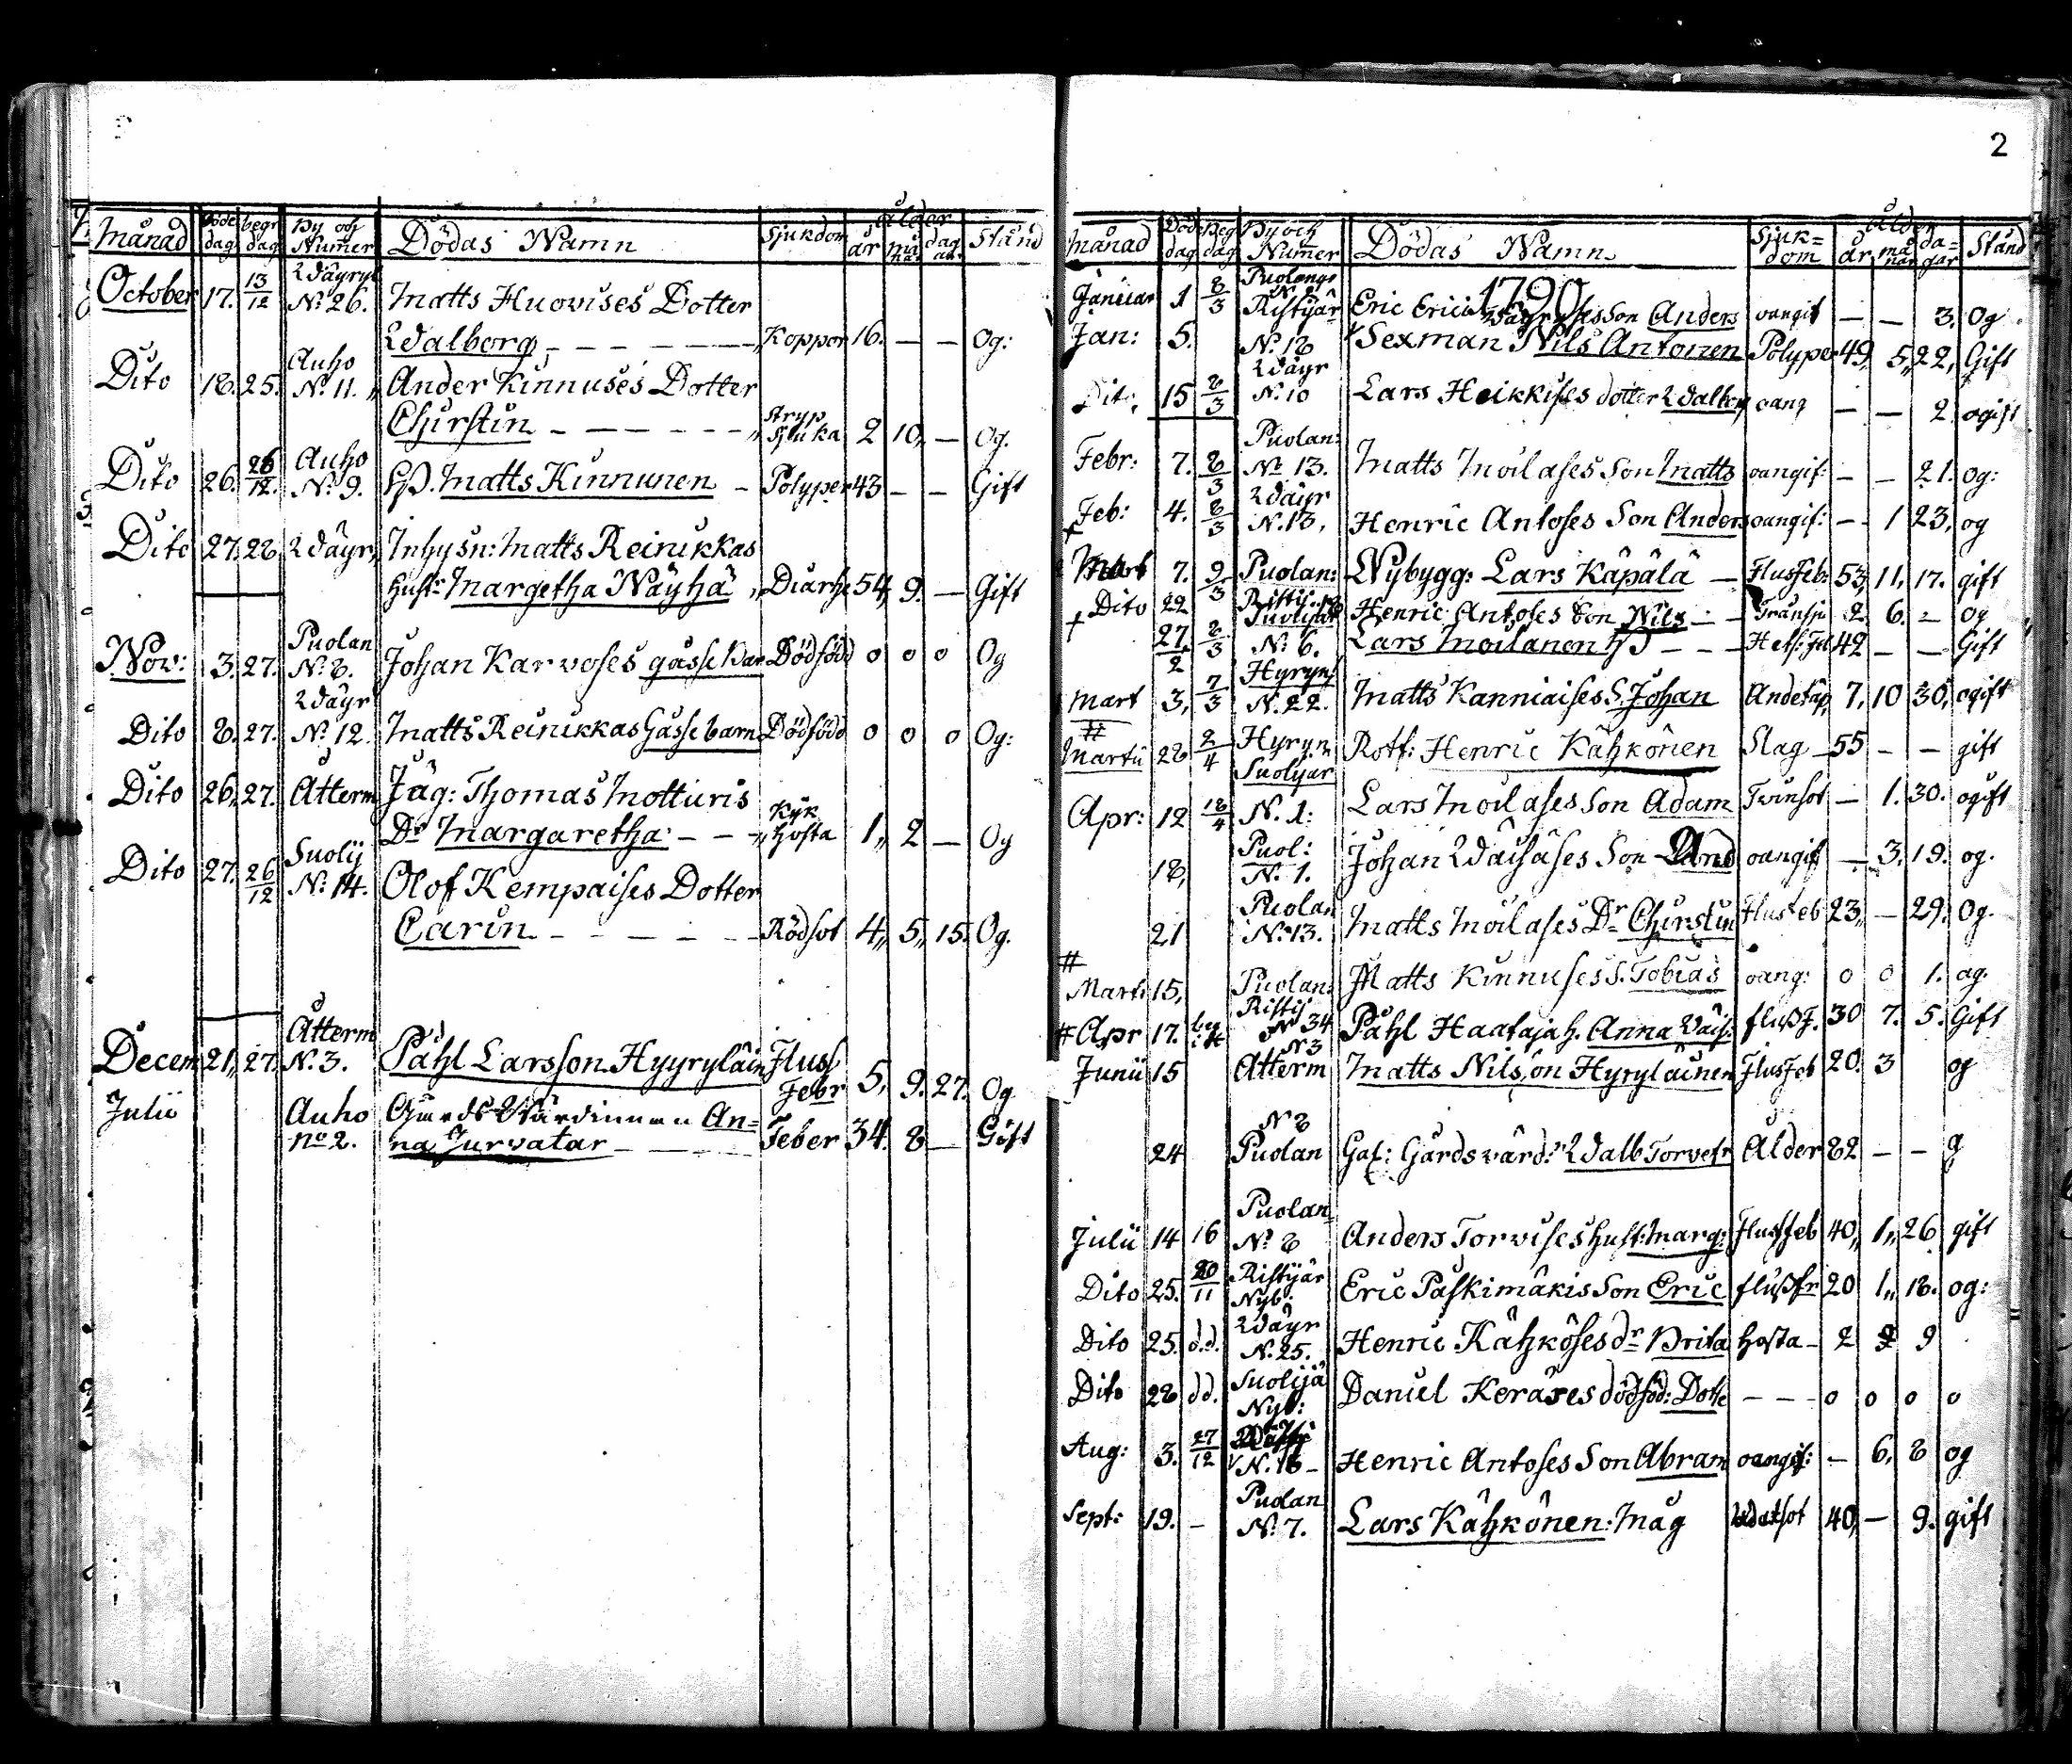 Månad Döde dag begr dag By och Numer Dödas Namn Sjukdom ålder år må nar dag ar Stånd
October 17. 13/12 Wäyryl No. 26. Matts Huovises Dotter
Walborg Koppor 16. — — Og:
Dito 18. 25. Auho No. 11. Ander Kinnuses Dotter
Chirstin stryp sjuka 2 10 — Og.
Dito 26. 26/12. Auho No. 9. Hp. Matts Kinnunen — Polyper 43 — — Gift
Dito 27. 28. Wäyr. Inhysn: Matts Reinikkas
hustr Margetha Näyhä Diarhe 54, 9. — Gift
Nov: 3. 27. Puolan No. 8. Johan Karvoses gåsse bar Dödfödd 0 0 0 Og
Dito 8. 27. Wäyr No. 12. Matts Reinikkas Gåsse barn Dödfödd 0 0 0 Og:
Dito 26. 27. Åtterm Jäg: Thomas Motturis
Dr Margaretha — — — Kyk hosta 1,, 2 — Og
Dito 27. 26/12 Suolij No. 14. Olof Kempaises Dotter
Carin — — — — Rödsot 4,, 5,, 15. Og.
Decem 21,, 27. Åtterm N. 3. Påhl Larsson Hyyryläin Fluss Febr 5, 9. 27. Og
Julii Auho no 2. Gårds Wärdinnan An=
na Jurvatar — — — Feber 34. 8 — Gift
2
Månad Död dag Beg dag By och Numer Dödas Namn Sjuk= dom Ålder år må nar da= gar Stånd
1790
Januar 1 8/3 Puolang Eric Erici Son Anders oangif — — 3. Og
Jan: 5. Ristijär N. 18 Sexman Nils Antoinen Polyper 49, 5,, 22, Gift
Dito, 15 8/3 Wäyr N. 10 Lars Heikkises dotter Walborg oang — — 2 ogift
Febr: 7. 8/3 Puolan: No 13. Matts Moilases Son Matts oangif: — — 21. Og:
Feb: 4. 8/3 Wäyr N. 13, Henric Antoses Son Anders oangif: — 1 23, og
Mart 7. 9/3 Puolan: Nybygg: Lars Käpälä — Flusfeb: 53, 11, 17. gift
Dito 22 Henric Antoses Son Nils — — 2. 6. — Og
27/2 8/3 N. 6. Lars Moilanen — — — 42 — — Gift
Mart 3, 7/3 Hyryns N. 22. Matts Kanniaises S. Johan Andetäp 7, 10 30, ogift
# Martii 28 2/4 Hyryn Rotf: Henric Kähkönen Slag — 55 — — gift
Apr: 12 18/4 Suolijar N. 1: Lars Moilases Son Adam Tvinsot — 1. 30. ogift
18, Puol: N. 1. Johan Wäisäses Son And oangif — 3, 19. og.
21 Puolan No. 13. Matts Moilases Dr Chirstin Flusfeb 23,, — 29. Og.
# Mart: 15, Puolan: Matts Kinnuses S. Tobias oang: 0 0 1. og.
# Apr 17. Ristij No 34 Påhl Haataja h. Anna Väis: flußf. 30 7. 5. Gift
Junii 15 N 3 Åtterm Matts Nilsson Hyryläinen Flusfeb 20. 3 og
24 N 8 Puolan Gaf: Gårdsvärd: Walb Torvefr Ålder 82 — — g
Julii 14 16 Puolan= No. 8 Anders Torvises hust: Marg: Flussfeb 40,, 1,, 26 gift
Dito 25. 20/11 Ristijär Nyb: Eric Paskimäkis Son Eric flußfr 20 1,, 18. og:
Dito 25. d.d. Wäyr N. 25. Henric Kähköses dr Brita hosta — 2 9
Dito 28 dd. Suolijä Nyb: Daniel Keräres dödföd: Dotte — — — 0 0 0 0
Aug: 3. 27/12 N. 16 — Henric Antoses Son Abram oangif: — 6, 8 og
Sept: 19. — Puolan N. 7. Lars Kähkönen: Måg Watsot 40, — 9. gift